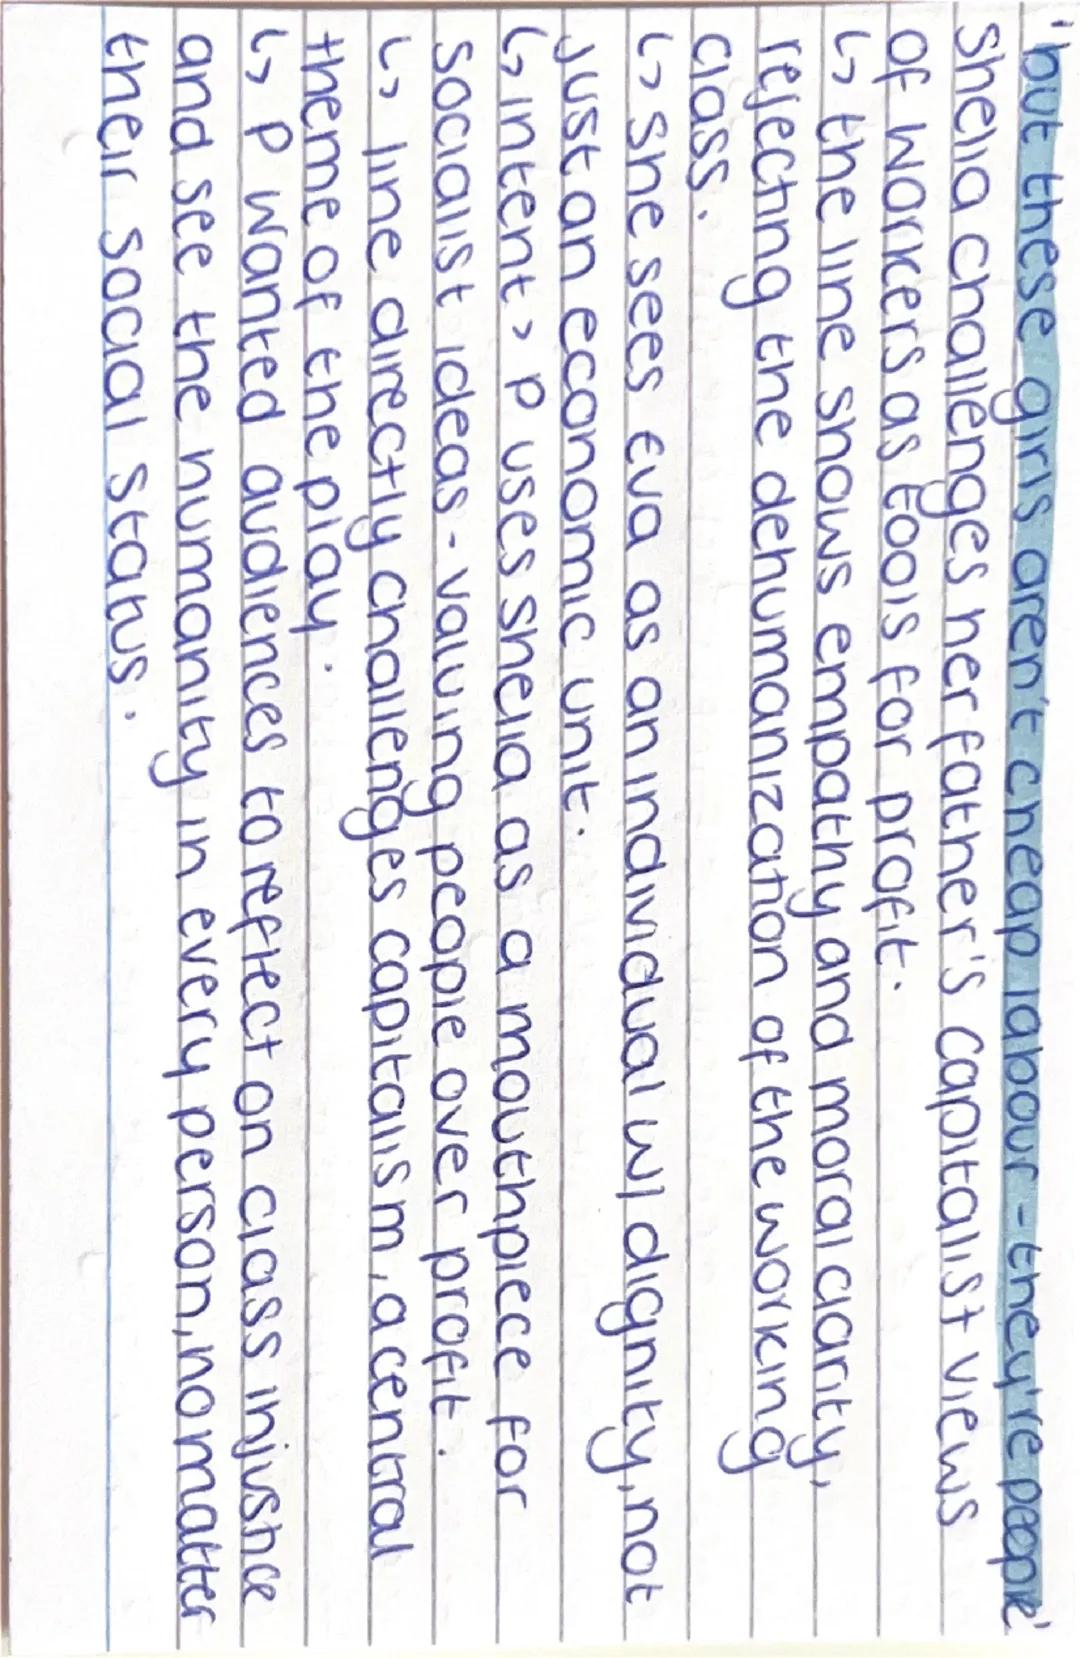 'but these girls aren't cheap labour - they're people'
Sheila challenges her father's capitalist views
of workers as tools for profit.
↳ the line shows empathy and moral clarity,
rejecting the dehumanization of the working
class.
↳ She sees Eva as an individual w/ dignity, not
just an economic unit.
↳ intent > P uses Sheila as a mouthpiece for
socialist ideas - valuing people over profit.
↳ line directly challenges capitalism, a central
theme of the play.
↳ P wanted audiences to reflect on class injustice
and see the humanity in every person, no matter
their social status.